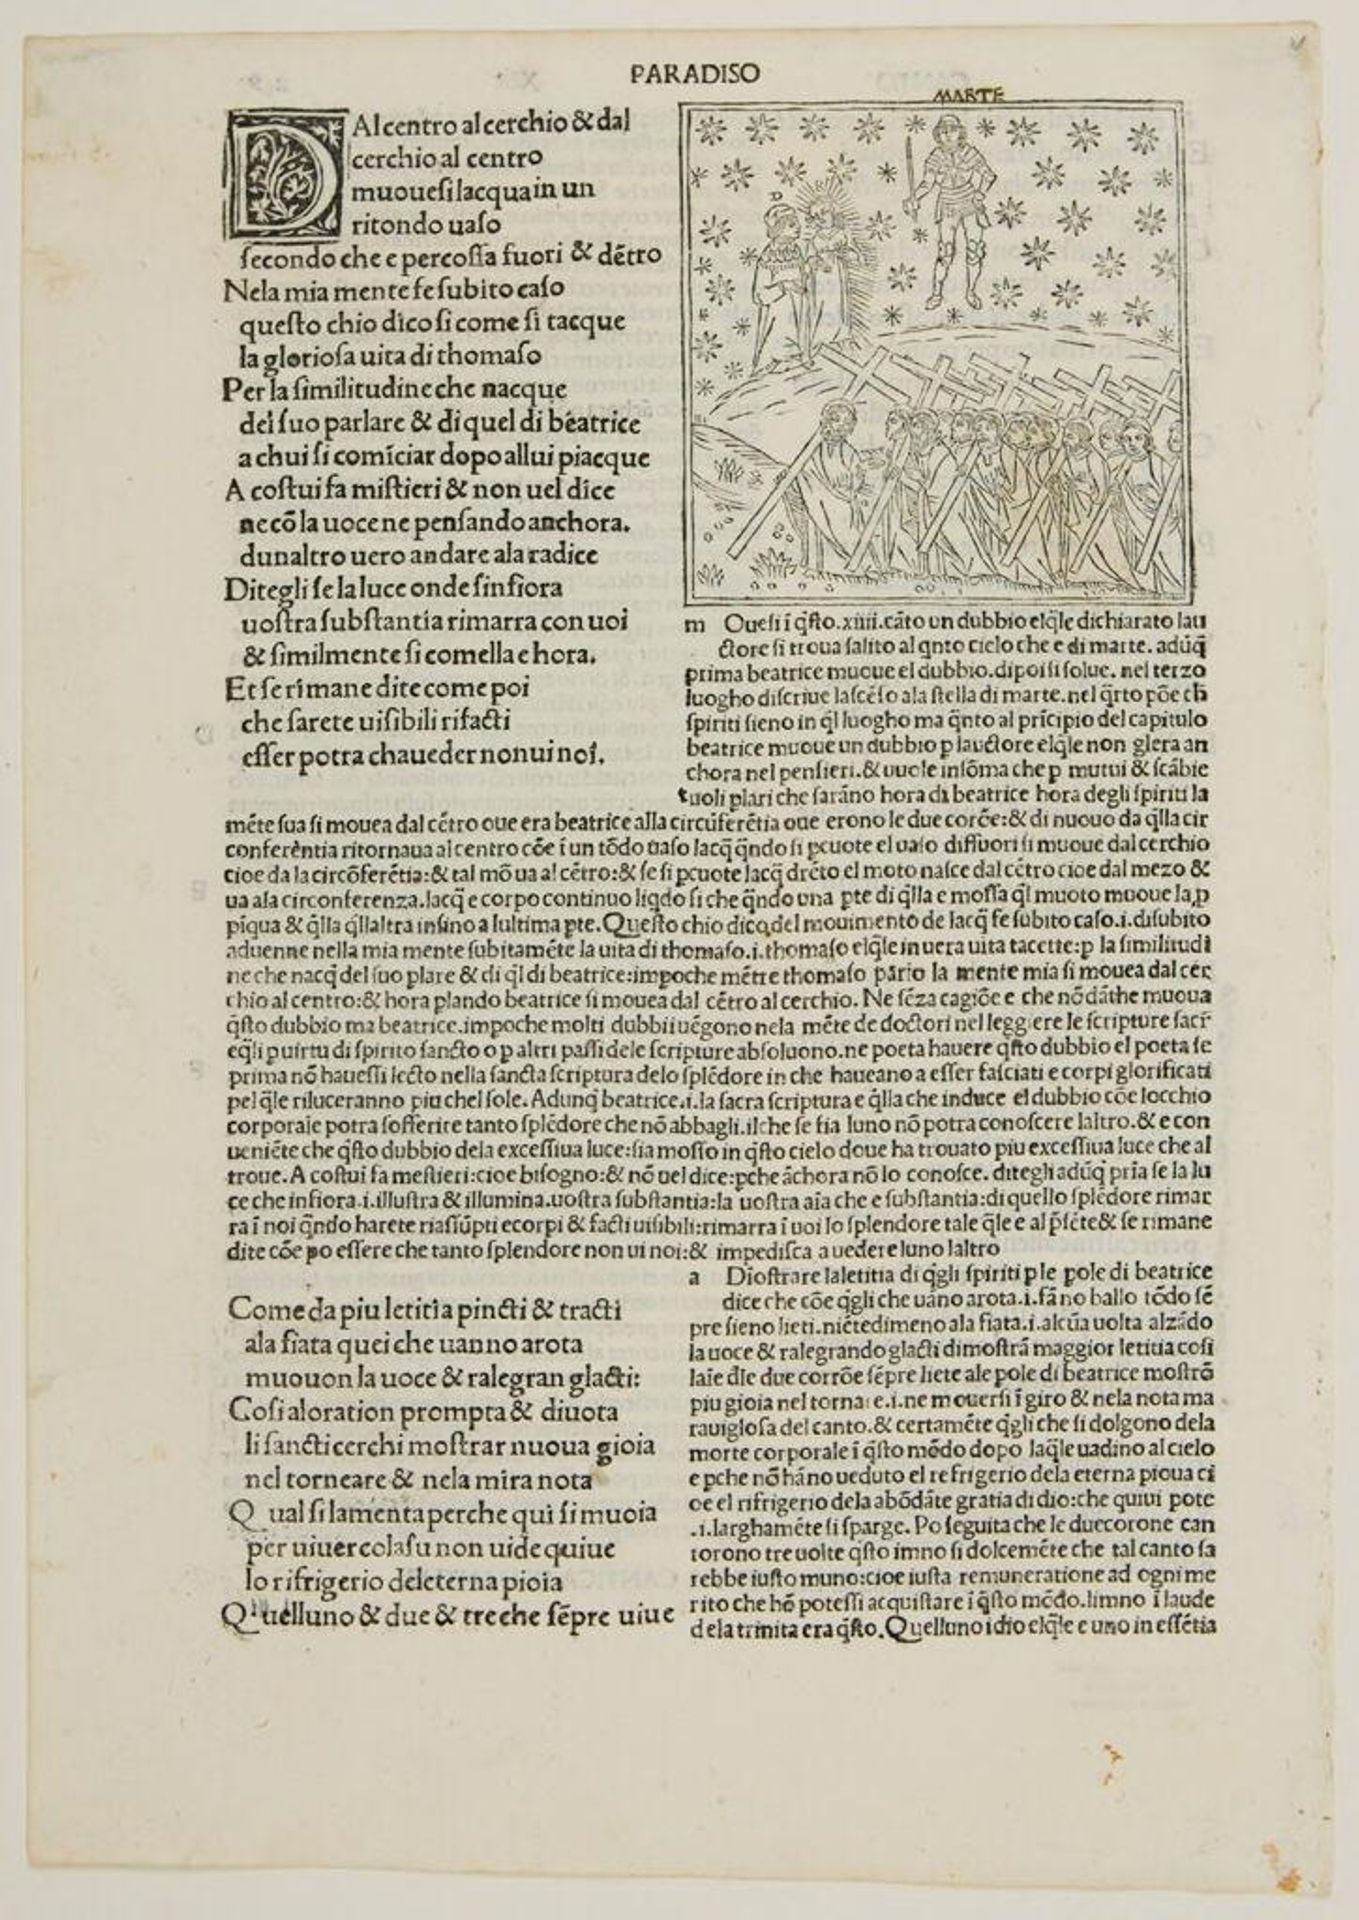 PARADISO
MARTE
DAl centro al cerchio & dal
cerchio al centro
muouesi lacqua in un
ritondo uaso
secondo che e percossa fuori & dētro
Nela mia mente fe subito caso
questo chio dico si come si tacque
la gloriosa uita di thomaso
Per la similitudine che nacque
del suo parlare & di quel di beatrice
a chui si comīciar dopo allui piacque
A costui fa mistieri & non uel dice
ne cō la uoce ne pensando anchora.
dunaltro uero andare ala radice
Ditegli se la luce onde sinfiora
uostra substantia rimarra con uoi
& similmente si comella e hora.
Et se rimane dite come poi
che sarete uisibili rifacti
esser potra cha ueder non ui noi.
m Ouesi ī q̄sto .xiiii. cāto un dubbio elq̄le dichiarato lau
ctore si troua salito al qnto cielo che e di marte. adūq̄
prima beatrice muoue el dubbio. dipoi si solue. nel terzo
luogho discriue lascēso ala stella di marte. nel q̄rto pōe ch
spiriti sieno in q̄l luogho ma q̄nto al prīcipio del capitulo
beatrice muoue un dubbio p lauctore elq̄le non glera an
chora nel pensieri. & uuole insōma che p mutui & scābie
uoli plari che sarāno hora di beatrice hora degli spiriti la
mēte sua si mouea dal cētro oue era beatrice alla circūferētia oue erono le due corōe: & di nuouo da q̄lla cir
conferēntia ritornaua al centro cōe ī un tōdo uaso lacq̄ q̄ndo si pcuote el uaso diffuori si muoue dal cerchio
cioe da la circōferētia: & tal mō ua al cētro: & se si pcuote lacq̄ drēto el moto nasce dal cētro cioe dal mezo &
ua ala circonferenza. lacq̄ e corpo continuo liqdo si che q̄ndo una pte di q̄lla e mossa q̄l muoto muoue la p
pīqua & q̄lla q̄llaltra insino a lultima pte. Questo chio dico del mouimento de lacq̄ fe subito caso .i. disubito
aduenne nella mia mente subitamēte la uita di thomaso .i. thomaso elq̄le in uera uita tacette: p la similitudi
ne che nacq̄ del suo plare & di q̄l di beatrice: impoche mētre thomaso pārlo la mente mia si mouea dal cer
chio al centro: & hora plando beatrice si mouea dal cētro al cerchio. Ne sēza cagiōe e che nō dāthe muoua
q̄sto dubbio ma beatrice. impoche molti dubbii uēgono nela mēte de doctori nel leggiere le scripture sacr
eq̄li p uirtu di spirito sancto o p altri passi dele scripture absoluono. ne poeta hauere q̄sto dubbio el poeta se
prima nō hauessi lecto nella sancta scriptura delo splēdore in che haueano a esser fasciati e corpi glorificati
pel q̄le riluceranno piu chel sole. Adunq̄ beatrice .i. la sacra scriptura e q̄lla che induce el dubbio cōe locchio
corporale potra sofferire tanto splēdore che nō abbagli. ilche se fia luno nō potra conoscere laltro. & e con
ueniēte che q̄sto dubbio dela excessiua luce: sia mosso in q̄sto cielo doue ha trouato piu excessiua luce che al
troue. A costui fa mestieri: cioe bisogno: & nō uel dice: pche āchora nō lo conosce. ditegli adūq̄ pria se la lu
ce che infiora .i. illustra & illumina. uostra substantia: la uostra aīa che e substantia: di quello splēdore rimar
ra ī noi q̄ndo harete riassūpti e corpi & facti uisibili: rimarra ī uoi lo splendore tale q̄le e al p̄sēte & se rimane
dite cōe po essere che tanto splendore non ui noi: & impedisca a uedere luno laltro
Come da piu letitia pincti & tracti
ala fiata quei che uanno arota
muouon la uoce & ralegran glacti:
Cosi aloration prompta & diuota
li sancti cerchi mostrar nuoua gioia
nel torneare & nela mira nota
Qual si lamenta perche qui si muoia
per uiuer colasu non uide quiue
lo rifrigerio deleterna pioia
Quelluno & due & tre che sēpre uiue
a Diostrare la letitia di q̄gli spiriti p le pole di beatrice
dice che cōe q̄gli che uāno arota .i. fāno ballo tōdo sē
pre sieno lieti. niētedimeno ala fiata .i. alcūa uolta alzādo
la uoce & ralegrando glacti dimostrā maggior letitia cosi
laīe dle due corrōe sēpre liete ale pole di beatrice mostrō
piu gioia nel tornare .i. ne mouersi ī giro & nela nota ma
rauiglosa del canto. & certamēte q̄gli che si dolgono dela
morte corporale ī q̄sto mōdo dopo laq̄le uadino al cielo
e pche nō hāno ueduto el refrigerio dela eterna pioua ci
oe el rifrigerio dela abōdāte gratia di dio: che quiui pote
.i. larghamēte si sparge. Po seguita che le due corone can
torono tre uolte q̄sto imno si dolcemēte che tal canto sa
rebbe iusto muno: cioe iusta remuneratione ad ogni me
rito che hō potessi acquistare ī q̄sto mōdo. limno ī laude
dela trinita era q̄sto. Quelluno idio elq̄le e uno in essētia